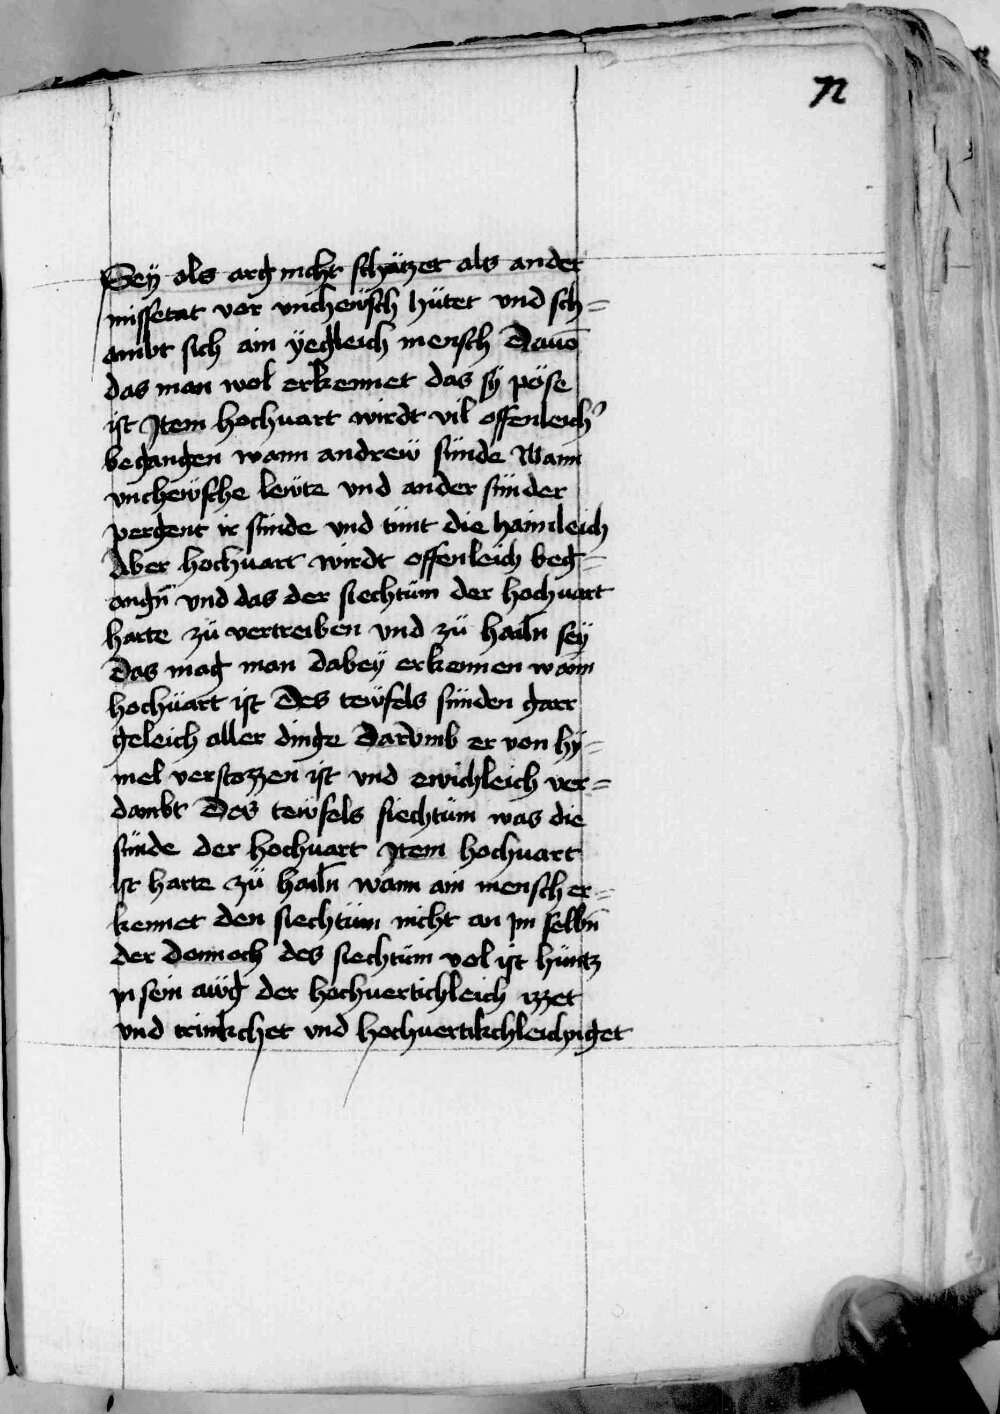 72
Sey als arg nicht schätzet als ander
missetat vor vnchewsch hütet vnd sch=
ambt sich ain yegleich mensch Dauō
das man wol erkennet das sy pöse
ist Item hochuart wirdt vil offenleich
begangen wann andrew sünde Wann
vnchewsche lewte vnd ander sünder
pergent ir sünde vnd tünt die haimleich
Aber hochuart wirdt offenleich beg=
angn̄ vnd das der siechtüm der hochuart
harte zü vertreiben vnd zü hailn̄ sey
Das mag man dabey erkennen wann
hochüart ist Des tewfels sünden garr
geleich aller dinge Darvmb er von hy=
mel verstozzen ist vnd ewichleich ver=
dambt Des tewfels siechtüm was die
sünde der hochuart Item hochuart
Ist harte zü hailn̄ wann ain mensch er=
kennet den siechtüm nicht an jm selbn̄
der dannoch des siechtüm vol ist hüntz
jn sein awg der hochuertichleich izzet
vnd trinkchet vnd hochuertikchleich